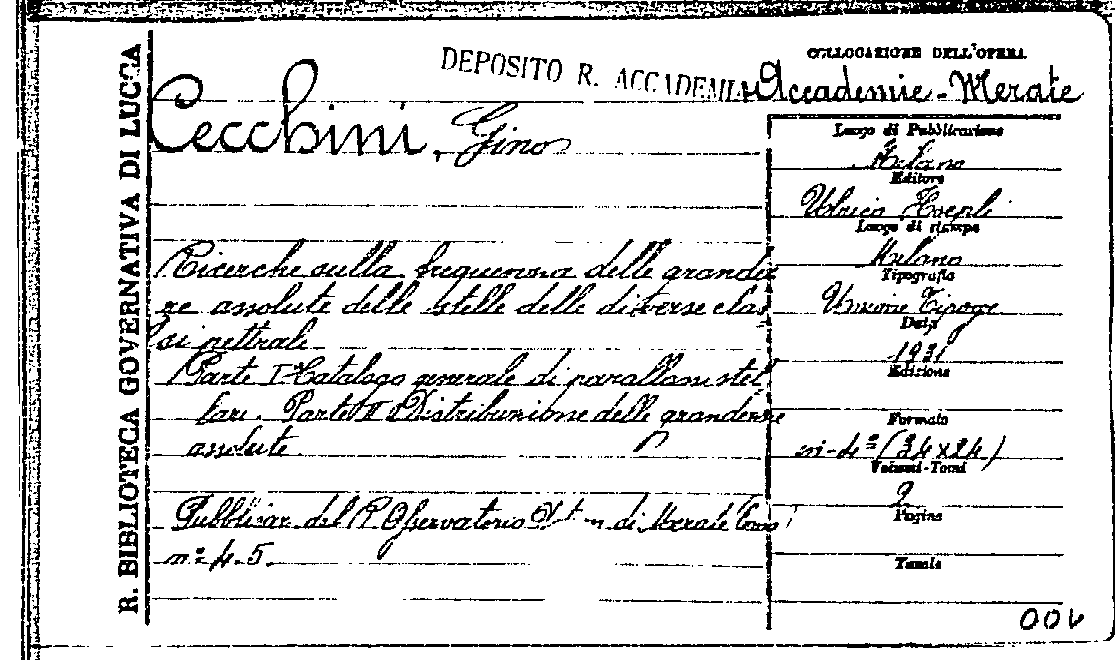 R. BIBLIOTECA GOVERNATIVA DI LUCCA
DEPOSITO R. ACCADEMIA
Cecchini, Gino
Ricerche sulla frequenza delle grandez
ze assolute delle stelle delle diverse clas
si spettrali
Parte I Catalogo generale di parallassi stel
lari. Parte II Distribuzione delle grandezze
assolute.
Pubblicaz. del R. Osservatorio di Merate
n.º 4-5.
COLLOCAZIONE DELL'OPERA
Accademie - Merate
Luogo di Pubblicazione
Milano
Editore
Ulrico Hoepli
Luogo di stampa
Milano
Tipografia
Unione Tipogr.
Data
1931
Edizione
Formato
in-4º (34x24)
Volumi-Tomi
2
Pagine
Tavole